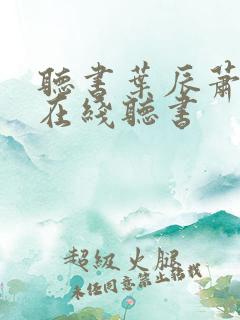 聽書葉辰蕭
在綫聽書
超級火腿
未經同意禁止轉載